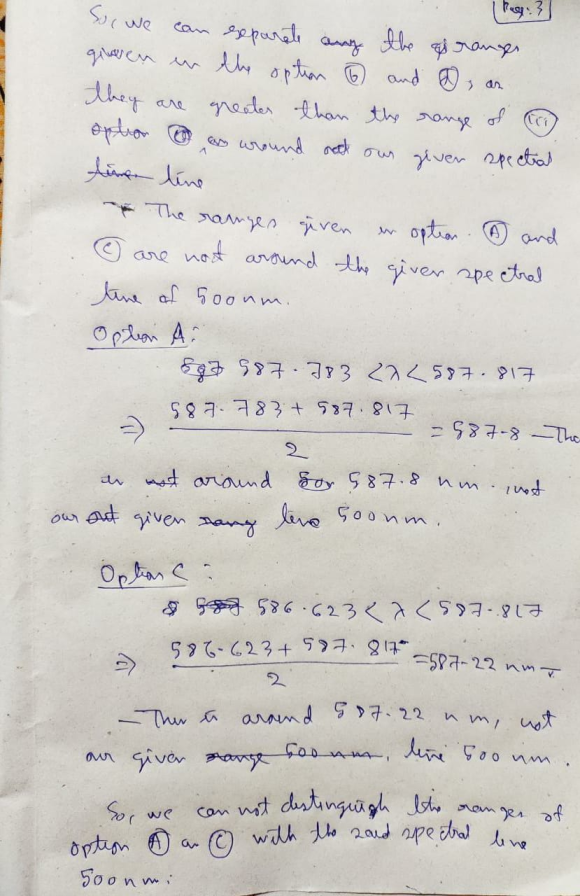 Page: 3
So, we can separate the ranges
given in the option (b) and (d), as
they are greater than the range of (iii)
option, as around our given spectral
line line
The ranges given in option (A) and
(C) are not around the given spectral
line of 500 nm.
Option A:
587.783 < λ < 587.817
⇒ 587.783 + 587.817 / 2 = 587.8 — The
is not around for 587.8 nm, not
our given line 500 nm.
Option C:
586.623 < λ < 587.817
⇒ 586.623 + 587.817 / 2 = 587.22 nm
— This is around 587.22 nm, not
our given range 500 nm, line 500 nm.
So, we can not distinguish the ranges of
option (A) or (C) with the said spectral line
500 nm.